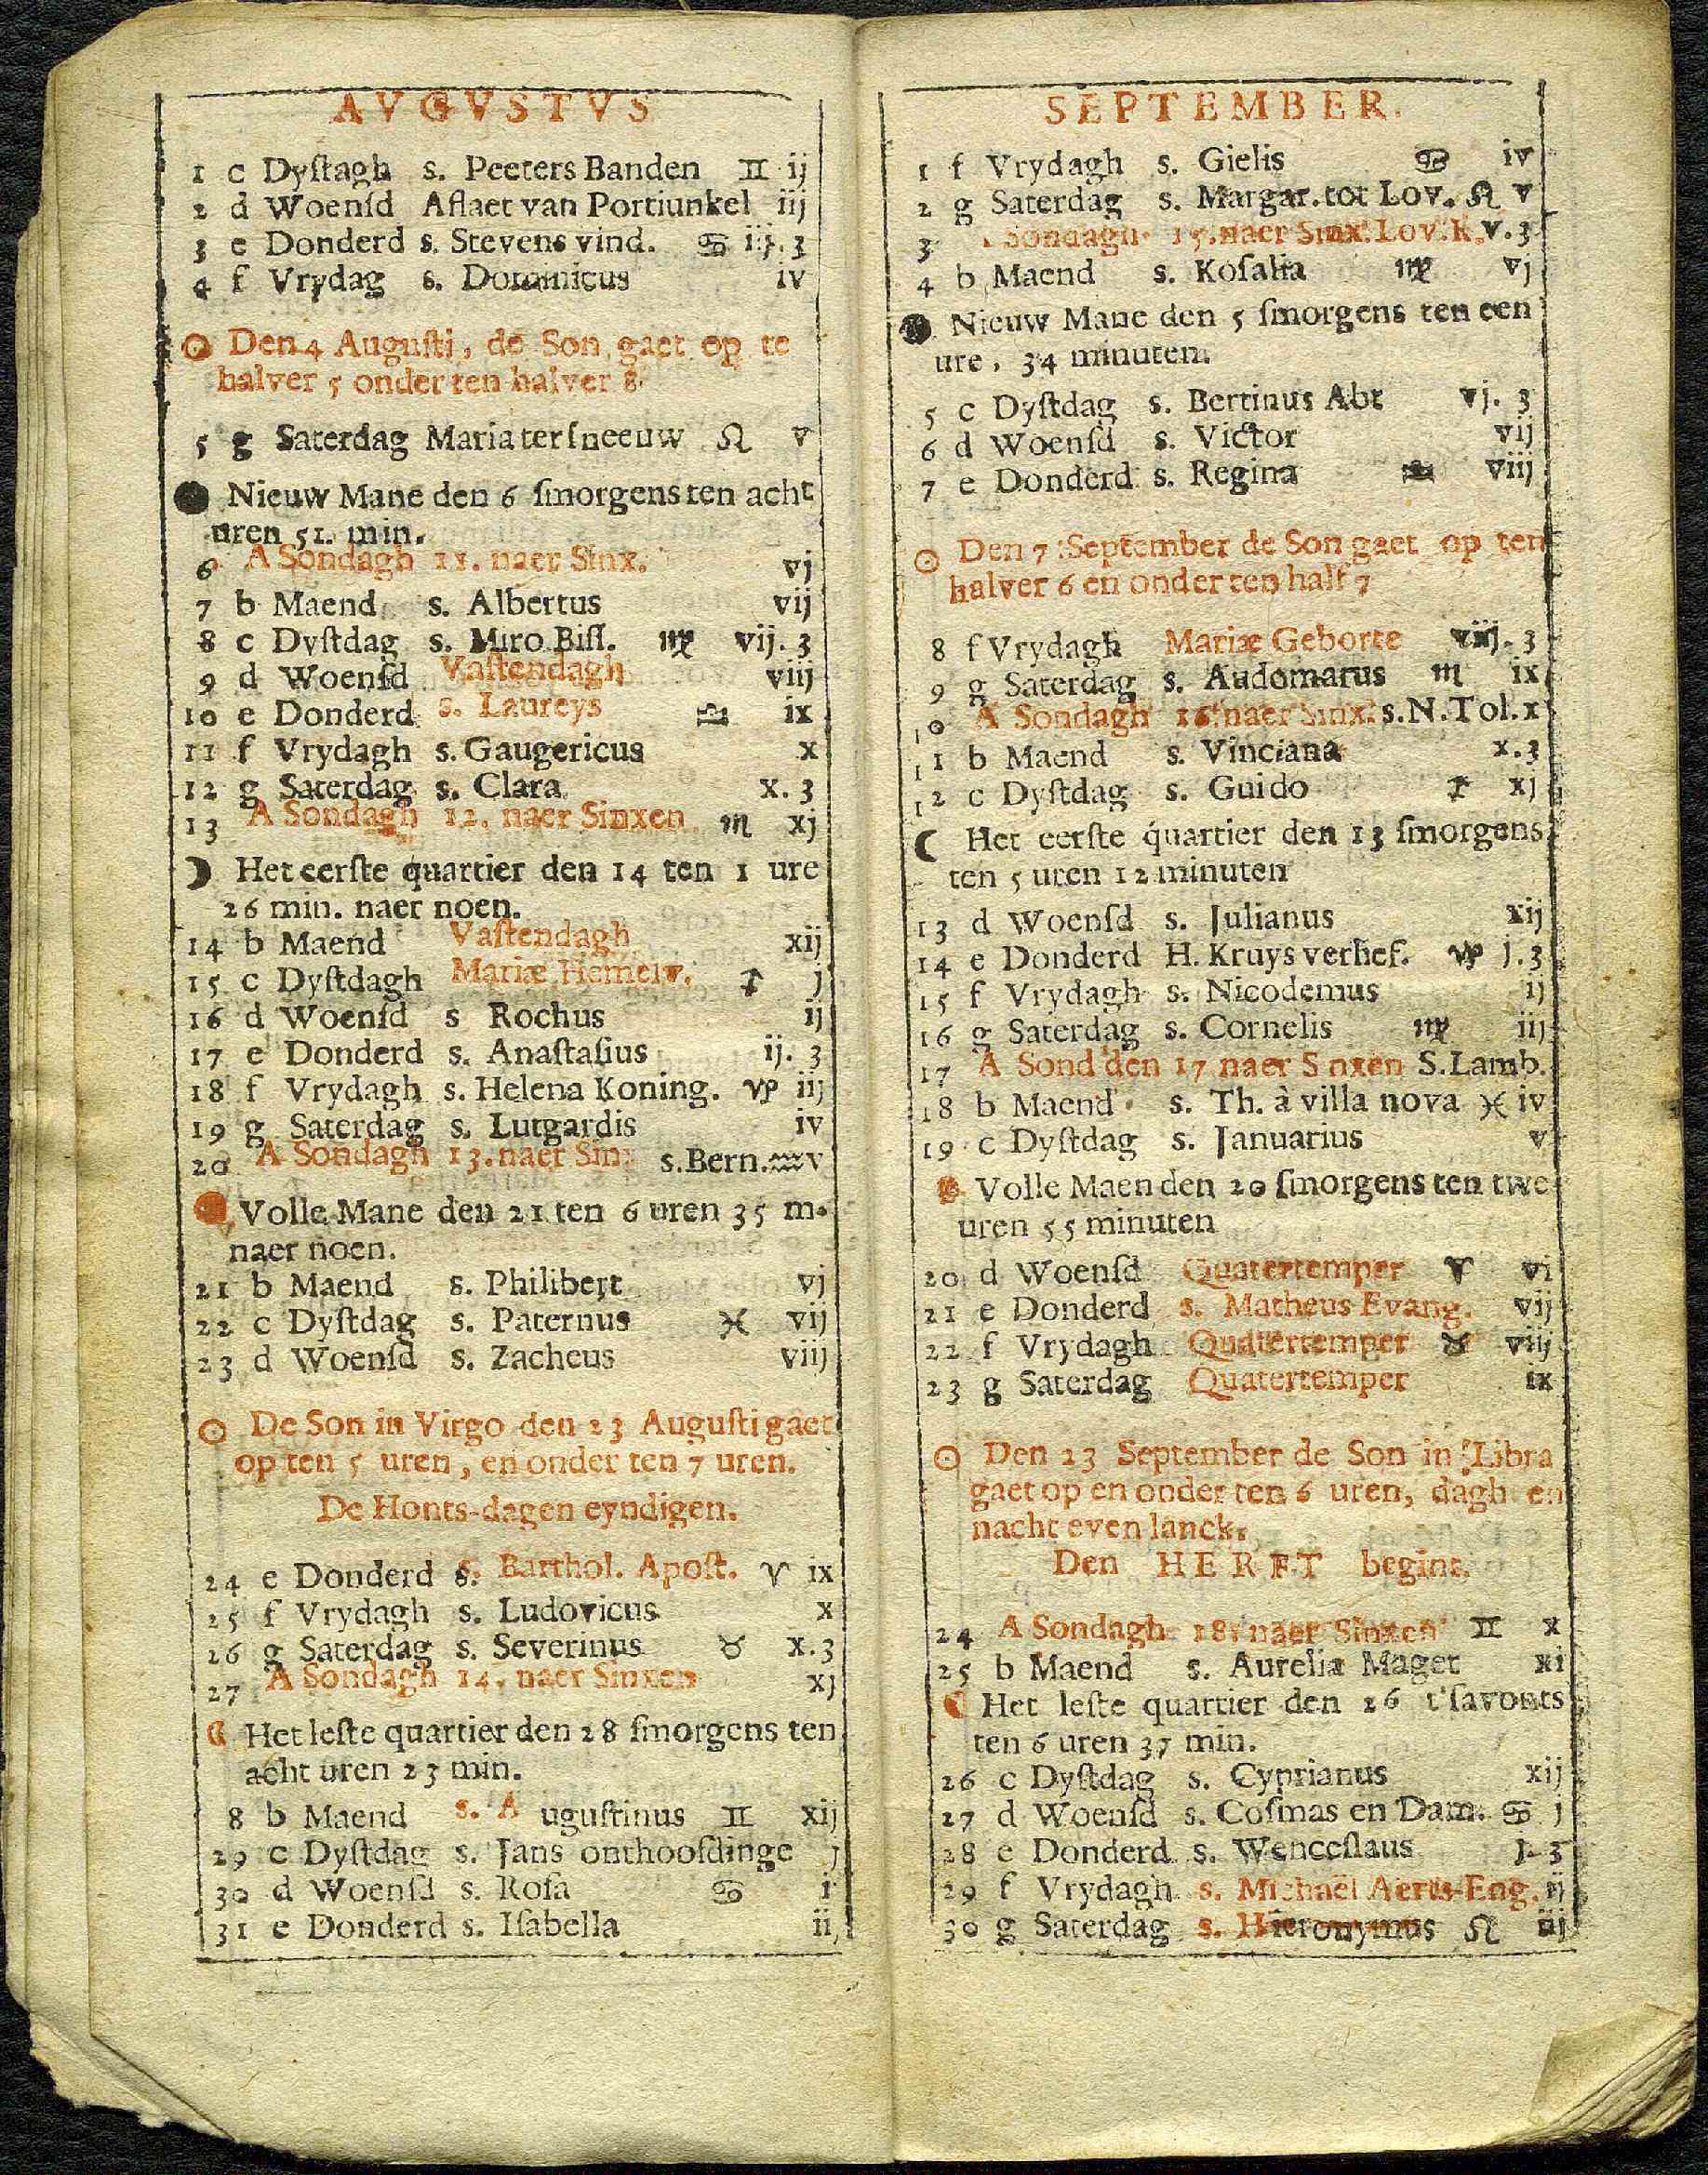 AVGVSTVS
1 c Dyſtagh s. Peeters Banden ♊ ij
2 d Woenſd Aflaet van Portiunkel iij
3 e Donderd s. Stevens vind. ♋ iij. 3
4 f Vrydag s. Dominicus iv
☉ Den 4 Auguſti, de Son gaet op te
halver 5 onder ten halver 8.
5 g Saterdag Maria ter ſneeuw ♌ v
● Nieuw Mane den 6 ſmorgens ten acht
uren 51. min.
6 A Sondagh 11. naer Sinx. vj
7 b Maend s. Albertus vij
8 c Dyſtdag s. Miro Biſſ. ♍ vij. 3
9 d Woenſd Vaſtendagh viij
10 e Donderd s. Laureys ♎ ix
11 f Vrydagh s. Gaugericus x
12 g Saterdag s. Clara x. 3
13 A Sondagh 12. naer Sinxen ♏ xj
☽ Het eerſte quartier den 14 ten 1 ure
26 min. naer noen.
14 b Maend Vaſtendagh xij
15 c Dyſtdagh Mariæ Hemelv. ♐ j
16 d Woenſd s Rochus ij
17 e Donderd s. Anaſtaſius ij. 3
18 f Vrydagh s. Helena Koning. ♑ iij
19 g Saterdag s. Lutgardis iv
20 A Sondagh 13. naer Sin s. Bern. ♒ v
Volle Mane den 21 ten 6 uren 35 m.
naer noen.
21 b Maend s. Philibert vj
22 c Dyſtdag s. Paternus ♓ vij
23 d Woenſd s. Zacheus viij
☉ De Son in Virgo den 23 Auguſti gaet
op ten 5 uren, en onder ten 7 uren.
De Honts-dagen eyndigen.
24 e Donderd s. Barthol. Apoſt. ♈ ix
25 f Vrydagh s. Ludovicus x
26 g Saterdag s. Severinus ♉ x. 3
27 A Sondagh 14. naer Sinxen xj
☾ Het leſte quartier den 28 ſmorgens ten
acht uren 23 min.
8 b Maend s. Auguſtinus ♊ xij
29 c Dyſtdag s. Jans onthoofdinge j
30 d Woenſd s. Roſa ♋ i
31 e Donderd s. Iſabella ii
SEPTEMBER.
1 f Vrydagh s. Gielis ♋ iv
2 g Saterdag s. Margar. tot Lov. ♌ v
3 Sondagh 15. naer Sinx. Lov. K. v. 3
4 b Maend s. Roſalia ♍ vj
● Nieuw Mane den 5 ſmorgens ten een
ure, 34 minuten.
5 c Dyſtdag s. Bertinus Abt vj. 3
6 d Woenſd s. Victor vij
7 e Donderd s. Regina ♎ viij
☉ Den 7 September de Son gaet op ten
halver 6 en onder ten half 7
8 f Vrydagh Mariæ Geborte viij. 3
9 g Saterdag s. Audomarus ♏ ix
10 A Sondagh 16. naer Sinx. s. N. Tol. x
11 b Maend s. Vinciana x. 3
12 c Dyſtdag s. Guido ♐ xj
☾ Het eerſte quartier den 13 ſmorgens
ten 5 uren 12 minuten
13 d Woenſd s. Julianus xij
14 e Donderd H. Kruys verhef. ♑ j. 3
15 f Vrydagh s. Nicodemus ij
16 g Saterdag s. Cornelis ♍ iij
17 A Sond den 17 naer S nxen S. Lamb.
18 b Maend s. Th. à villa nova ♓ iv
19 c Dyſtdag s. Januarius v
Volle Maen den 20 ſmorgens ten twe
uren 55 minuten
20 d Woenſd Quatertemper ♈ vi
21 e Donderd s. Matheus Evang. vij
22 f Vrydagh Quatertemper ♉ viij
23 g Saterdag Quatertemper ix
☉ Den 23 September de Son in Libra
gaet op en onder ten 6 uren, dagh en
nacht even lanck.
Den HERFT begint.
24 A Sondagh 18. naer Sinxen ♊ x
25 b Maend s. Aureliæ Maget xi
☾ Het leſte quartier den 26 t'ſavonts
ten 6 uren 37 min.
26 c Dyſtdag s. Cyprianus xij
27 d Woenſd s. Coſmas en Dam. ♋ j
28 e Donderd s. Wenceſlaus j. 3
29 f Vrydagh s. Michaël Aerts-Eng. ij
30 g Saterdag s. Hieronymus ♌ iij